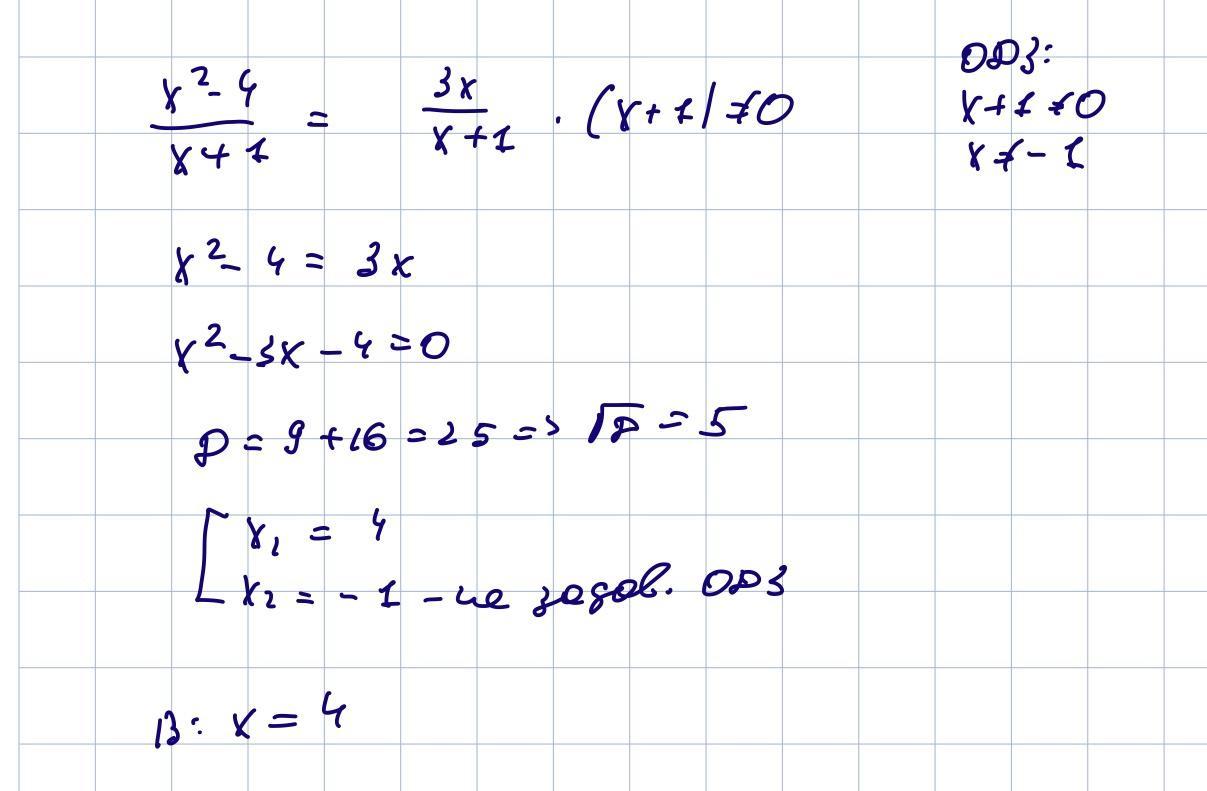 (x² - 4)/(x + 1) = 3x/(x + 1) · (x + 1) ≠ 0
ОДЗ:
x + 1 ≠ 0
x ≠ - 1
x² - 4 = 3x
x² - 3x - 4 = 0
D = 9 + 16 = 25 => √D = 5
[ x₁ = 4
x₂ = - 1 - не задов. ОДЗ
В: x = 4